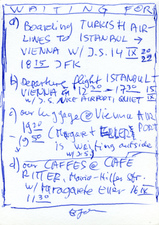 WAITING FOR
a) Boarding TURKISH AIR-
LINES to ISTANBUL →
VIENNA W/J.S. 14 IX 2022
18 15 JFK
b) Departure flight ISTANBUL →
VIENNA 12 30 – 17 30 15 IX
W/J.S. NICE AIRPORT, QUIET
c) our luggage @ Vienna AIR
PORT
19 50 (Margaret
is waiting outside
W/J.S.)
d) our CAFFES @ CAFE
RITTER, Maria-Hilfer Str.
W/ Margarete Eller 16 IX
11 30